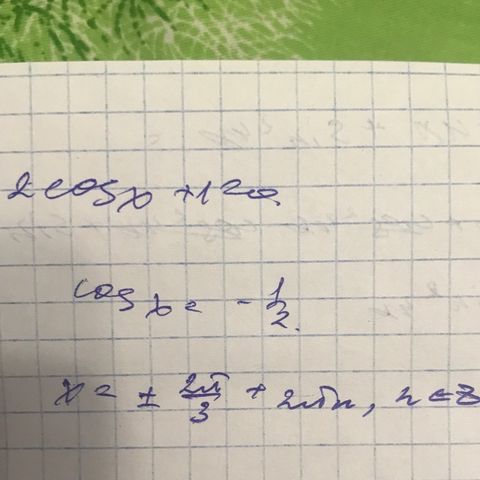 2cosx+1=0
cosx = -1/2.
x = ± 2π/3 + 2πn, n ∈ Z